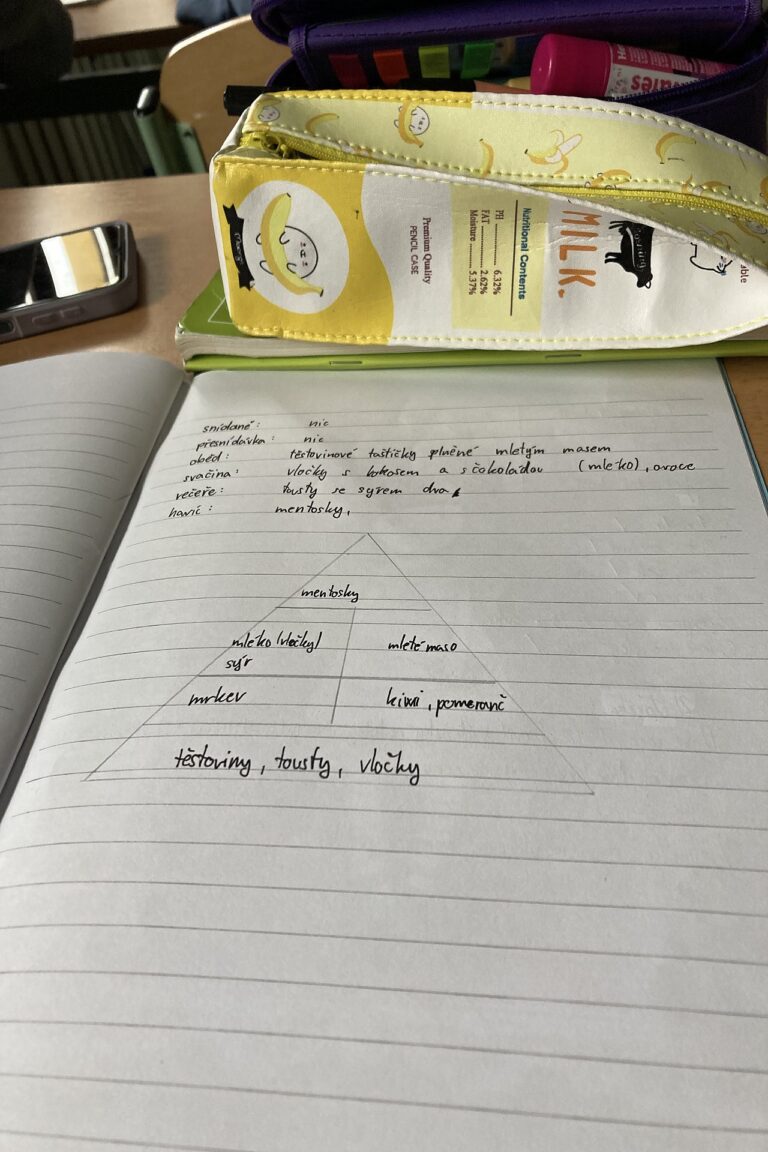 MILK.
Nutritional Contents
PH ........ 6.32%
FAT ........ 2.62%
Moisture ........ 5.37%
Premium Quality
PENCIL CASE
snídaně: nic
přesnídávka: nic
oběd: těstovinové taštičky plněné mletým masem
svačina: vločky s kokosem a s čokoládou (mléko), ovoce
večeře: tousty se sýrem dva,
navíc: mentosky,
mentosky
mléko (vločky)
sýr
mleté maso
mrkev
kiwi, pomeranč
těstoviny, tousty, vločky